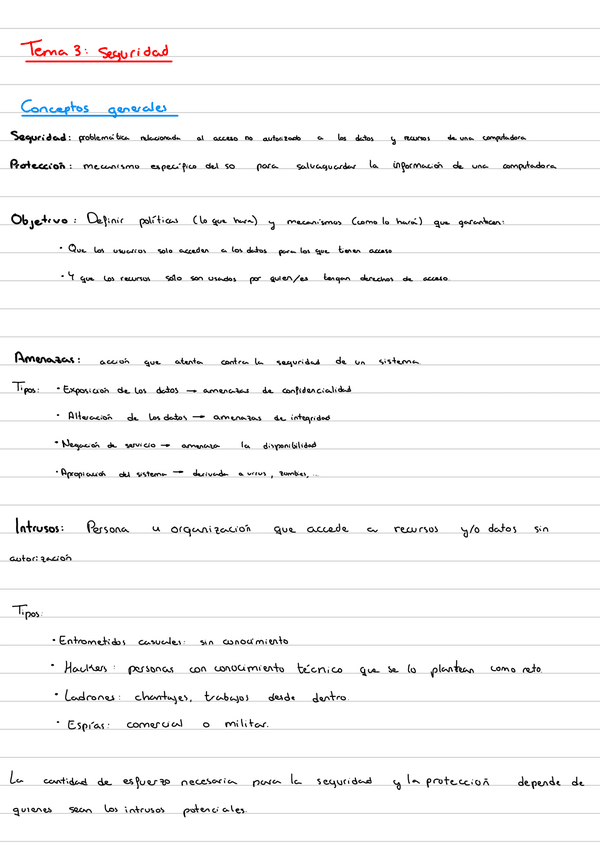 Tema 3: Seguridad
Conceptos generales
Seguridad: problemática relacionada al acceso no autorizado a los datos y recursos de una computadora
Protección: mecanismo específico del so para salvaguardar la información de una computadora
Objetivo: Definir políticas (lo que hará) y mecanismos (como lo hará) que garanticen:
· Que los usuarios solo acceden a los datos para los que tienen acceso
· Y que los recursos sólo son usados por quien/es tengan derechos de acceso.
Amenazas: acción que atenta contra la seguridad de un sistema
Tipos: · Exposición de los datos → amenazas de confidencialidad
· Alteración de los datos → amenazas de integridad
· Negación de servicio → amenaza la disponibilidad
· Apropiación del sistema → derivada a virus, zombies,...
Intrusos: Persona u organización que accede a recursos y/o datos sin
autorización
Tipos:
· Entrometidos casuales: sin conocimiento
· Hackers: personas con conocimiento técnico que se lo plantean como reto.
· Ladrones: chantajes, trabajos desde dentro.
· Espías: comercial o militar.
La cantidad de esfuerzo necesaria para la seguridad y la protección depende de
quienes sean los intrusos potenciales.